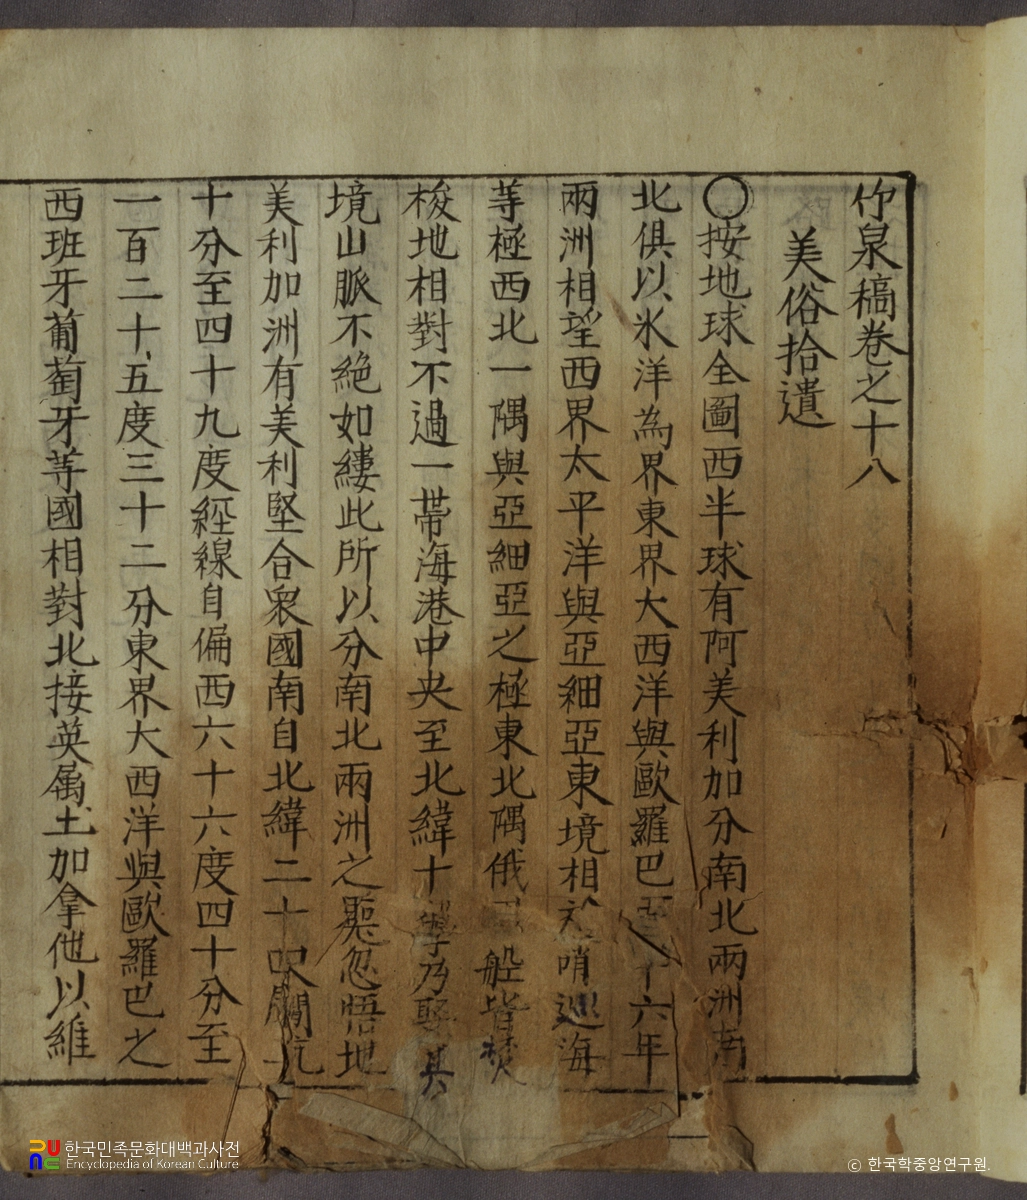 竹泉稿卷之十八
美俗拾遺
〇按地球全圖西半球有阿美利加分南北兩洲南
北俱以氷洋為界東界大西洋與歐羅巴 六年
兩洲相望西界太平洋與亞細亞東境相 哨巡海
等極西北一隅與亞細亞之極東北隅俄 般皆焚
梭地相對不過一帶海港中央至北緯十 乃 其
境山脈不絶如縷此所以分南北兩洲之 忽悟地
美利加洲有美利堅合衆國南自北緯二十
十分至四十九度經線自偏西六十六度四十分至
一百二十五度三十二分東界大西洋與歐羅巴之
西班牙葡萄牙等國相對北接英属土加拿他以維
한국민족문화대백과사전
Encyclopedia of Korean Culture
© 한국학중앙연구원.